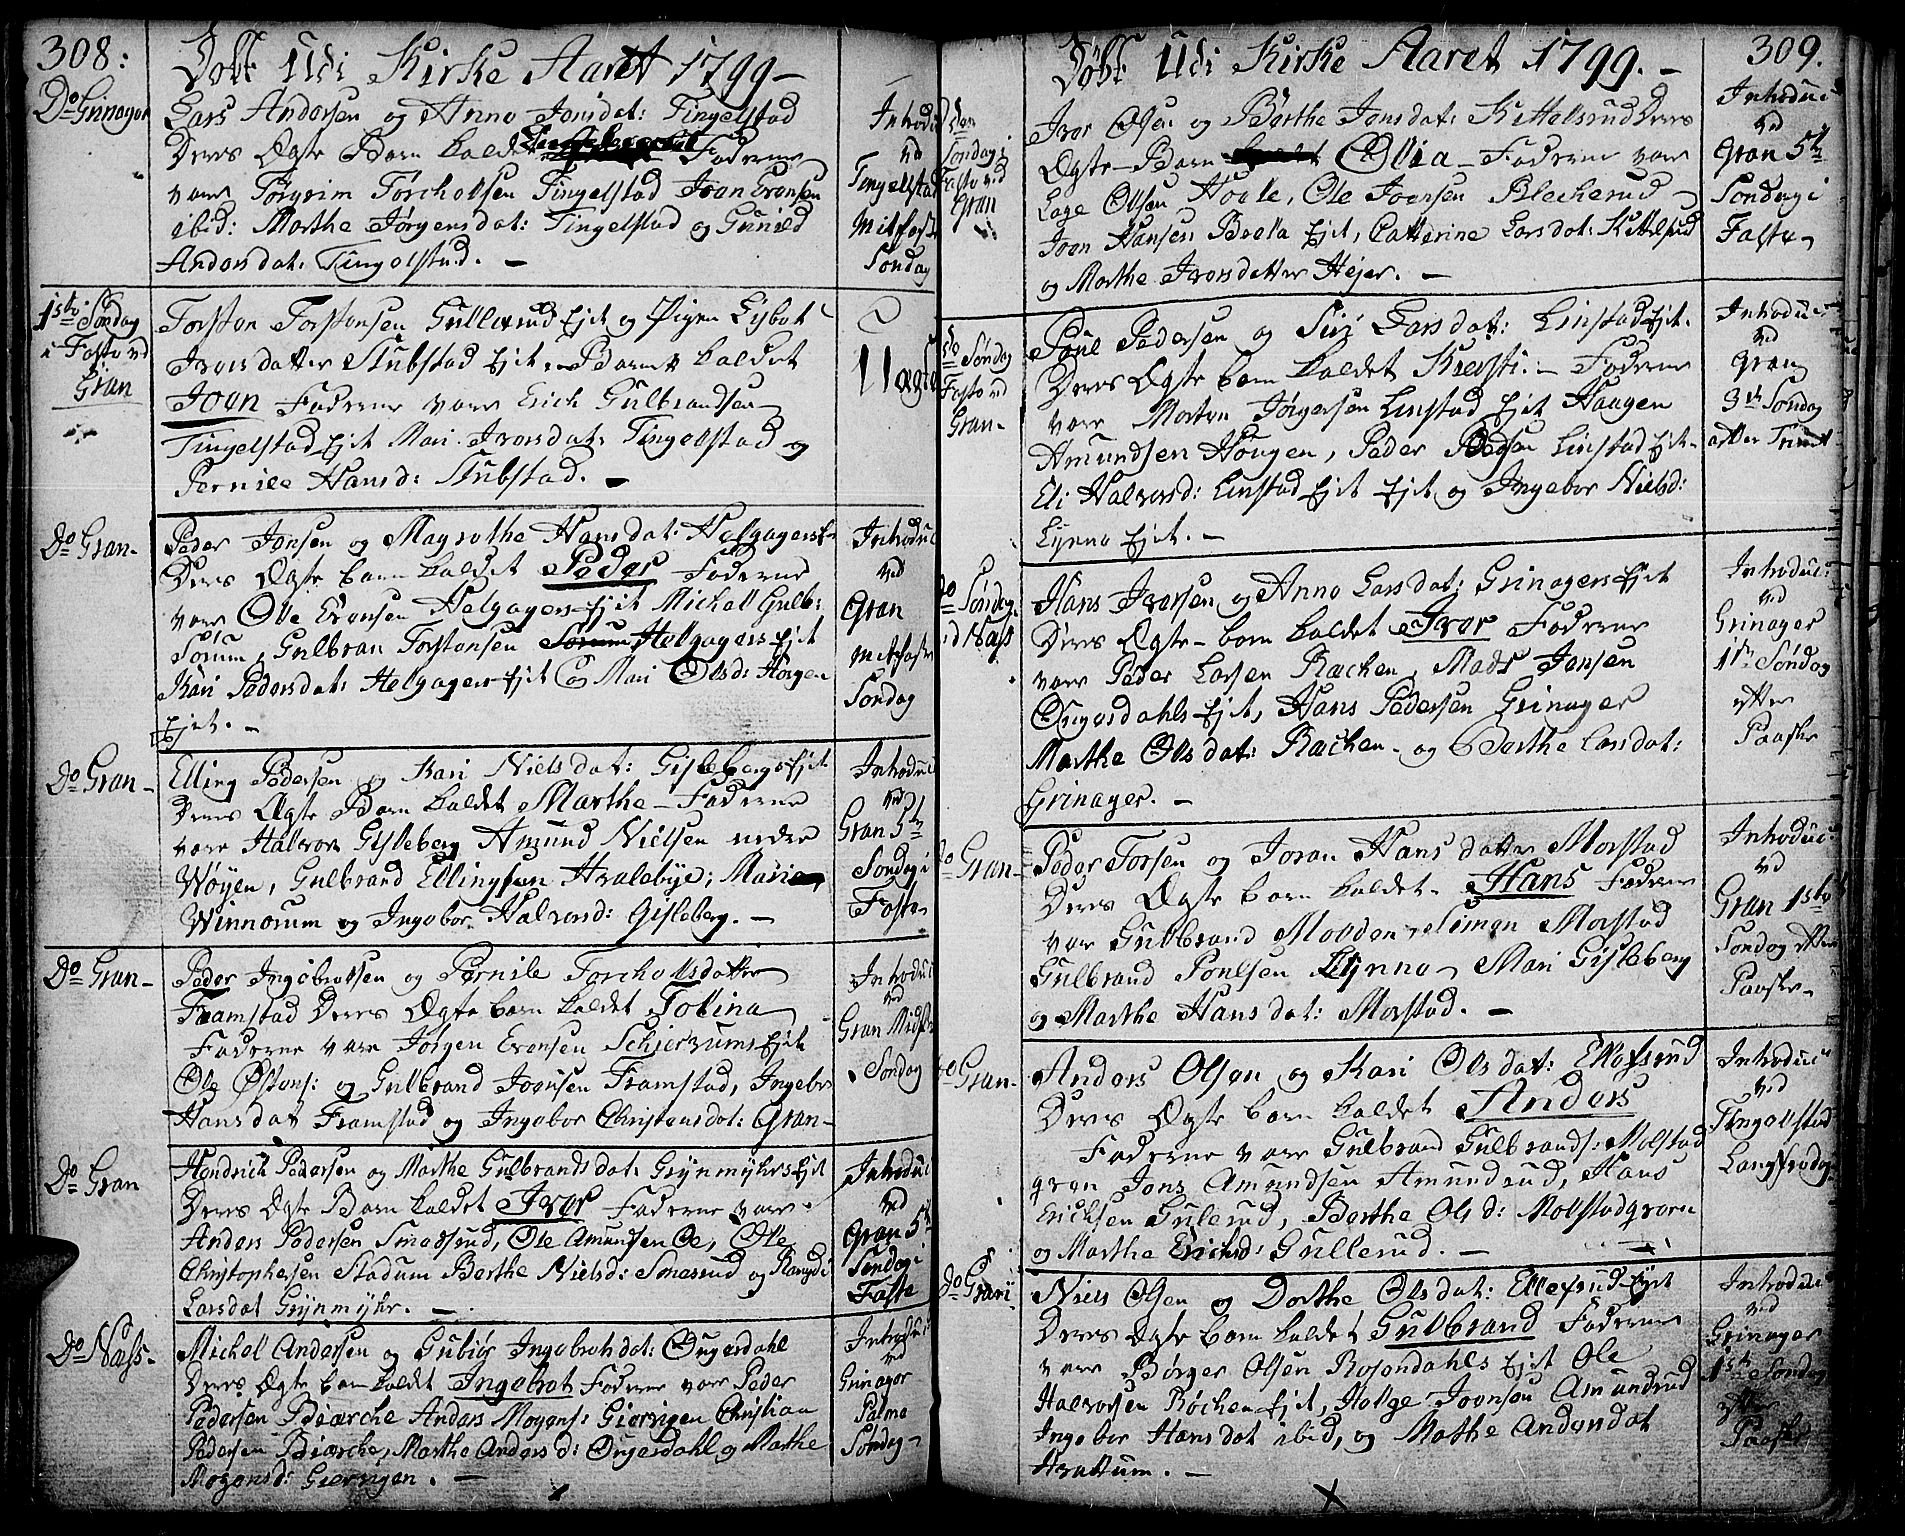 308:
Døbt Udi Kirke Aaret 1799 –
Do Grinager
Lars Andersen og Anne Jonsdat: Tingelstad
Deres Ægte Barn kaldet Fadderne
vare Torgrim Torchelsen Tingelstad Joan Evensen
ibid: Marthe Jørgensdat: Tingelstad og Gunild
Andersdat: Tingelstad. –
Introduc
ved
Tingelstad
Mitfaste
Søndag
1ste Søndag
i Faste ved
Gran
Torsten Torstensen Gullerud Ejet og Pigen Lisbet
Iversdatter Stubstad Ejet Barnet kaldet
Joen Fadderne vare Erich Gulbrandsen
Tingelstad Ejet Mari Iversdat: Tingelstad og
Pernile Hansd: Stubstad. –
Uægte
Do Gran –
Peder Jonsen og Magrethe Hansdat: Helgagers E
Deres Ægte barn kaldet Peder Fadderne
vare Ole Evensen Helgagers Ejet Michell Gulb:
Sørum, Gulbran Torstensen Helgagers Ejet
Kari Pedersdat: Helgagers Ejet og Mari Olsd: Horgen
Ejet. –
Introduc
ved
Gran
Mitfaste
Søndag
Do Gran –
Elling Pedersen og Kari Nielsdat: Gislebergs Ejet
Deres Ægte Barn kaldet Marthe – Fadderne
vare Halvor Gisleberg Amund Nielsen nedre
Wøyen, Gulbrand Ellingsen Hvalebye; Mari
Winnorum og Ingebor Halvorsd: Gisleberg. –
Introduc
ved
Gran 5te
Søndag i
Faste –
Do Gran –
Peder Ingebretsen og Pernile Torchelsdatter
Framstad Deres Ægte barn kaldet Tolina
Fadderne vare Jørgen Evensen Schierrums Ejet
Ole Østens: og Gulbrand Joensen Framstad, Ingebor
Hansdat Framstad og Ingebor Christensdat: Gran –
Introduc
ved
Gran Midf
Søndag
Do Gran
Hendrich Pedersen og Marthe Gulbrandsdat: Grynmyhrs Ejet
Deres Ægte Barn kaldet Iver Fadderne vare
Anders Pedersen Smedsrud, Ole Amundsen Oe, Ole
Christophersen Stadum Berthe Nielsd: Smesrud og Rangdi
Larsdat Grynmyhr. –
Introduc
ved
Gran 5te
Søndag i
Faste
Do Næss –
Michel Andersen og Gubiør Ingebretsdat: Ougerdahl
Deres Ægte barn kaldet Ingebret Fadderne vare Peder
Pedersen Biærche Anders Mogens: Gierrigen Christian
Pedersen Biærche, Marthe Andersd: Ougerdahl og Marthe
Mogensd: Gierrigen. –
Introduc
ved
Grinager
Palme
Søndag –
Døbt Udi Kirke Aaret 1799. –
309.
Søndag i
Faste ved
Gran
Iver Olsen og Berthe Jonsdat: Kittelsrud Deres
Ægte Barn Olia – Fadderne vare
Lage Olsen Hoole, Ole Joensen Blecherud
Joen Hansen Ejet, Catterine Larsdat: Kittelsrud
og Marthe Iversdatter Hejer. –
Introduc:
ved
Gran 5te
Søndag i
Faste –
Søndag
Faste ved
Gran –
Poul Pedersen og Siri Larsdat: Linstad Ejet.
Deres Ægte barn kaldet Kiersti. – Fadderne
vare Morten Jørgersen Linstad Ejet Haagen
Amundsen Hougen, Peder Linstad Ejet –
Eli Halvorsd: Linstad Ejet Ejet og Ingebor Nielsd:
Lynne Ejet. –
Introduc:
ved
Gran
3de Søndag
efter Trinit
do Søndag
ved Næss
Hans Iversen og Anne Larsdat: Grinagers Ejet
Deres Ægte – barn kaldet Iver Fadderne
vare Peder Larsen Rachen, Mads Jensen
Ougerdahls Ejet, Hans Pedersen Grinager
Marthe Olsdat: Rachen – og Berthe Larsdat:
Grinager. –
Introduc:
ved
Grinager
1ste Søndag
efter
Paaske
do Gran –
Peder Torsen og Joran Hansdatter Morstad
Deres Ægte barn kaldet – Hans Fadderne
vare Gulbrand Moolden, Simen Morstad
Gulbrand Poulsen Lynne, Mari Gisleberg
og Marthe Hansdat: Morstad. –
Introduc:
ved
Gran 1ste
Søndag efter
Paaske –
do Gran –
Anders Olsen og Kari Olsdat: Ellefsrud
Deres Ægte barn kaldet Anders
Fadderne vare Gulbrand Gulbrands: Molstad
gran Jons Amundsen Amundrud, Hans
Erichsen Gulerud, Berthe Olsd: Molstadgrann
og Marthe Erichsd: Gullerud. –
Introduc:
ved
Tingelstad
Langfredag
do Gran –
Niels Olsen og Dorthe Olsdat: Ellefsrud Ejet
Deres Ægte barn kaldet Gulbrand Fadderne
vare Børger Olsen Rosendahls Ejet Ole
Halvorsen Røchen Ejet, Helge Joensen Amundrud
Ingebor Hansdat ibid, og Mathe Andersdat
Hvattum. –
Introduc:
ved
Grinager
1ste Søndag
efter
Paaske